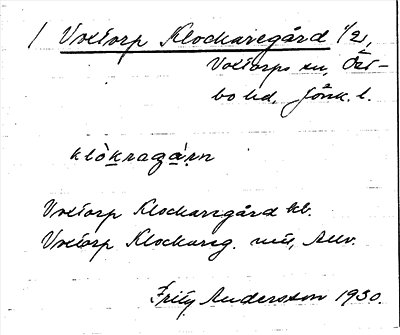 / Voxtorp Klockaregård 1/2,
Voxtorps sn, Öst-
bo hd, Jönk. l.
klòkragá̱ṛn
Voxtorp Klockaregård kb.
Voxtorp Klockareg.
Fritz Andersson 1930.